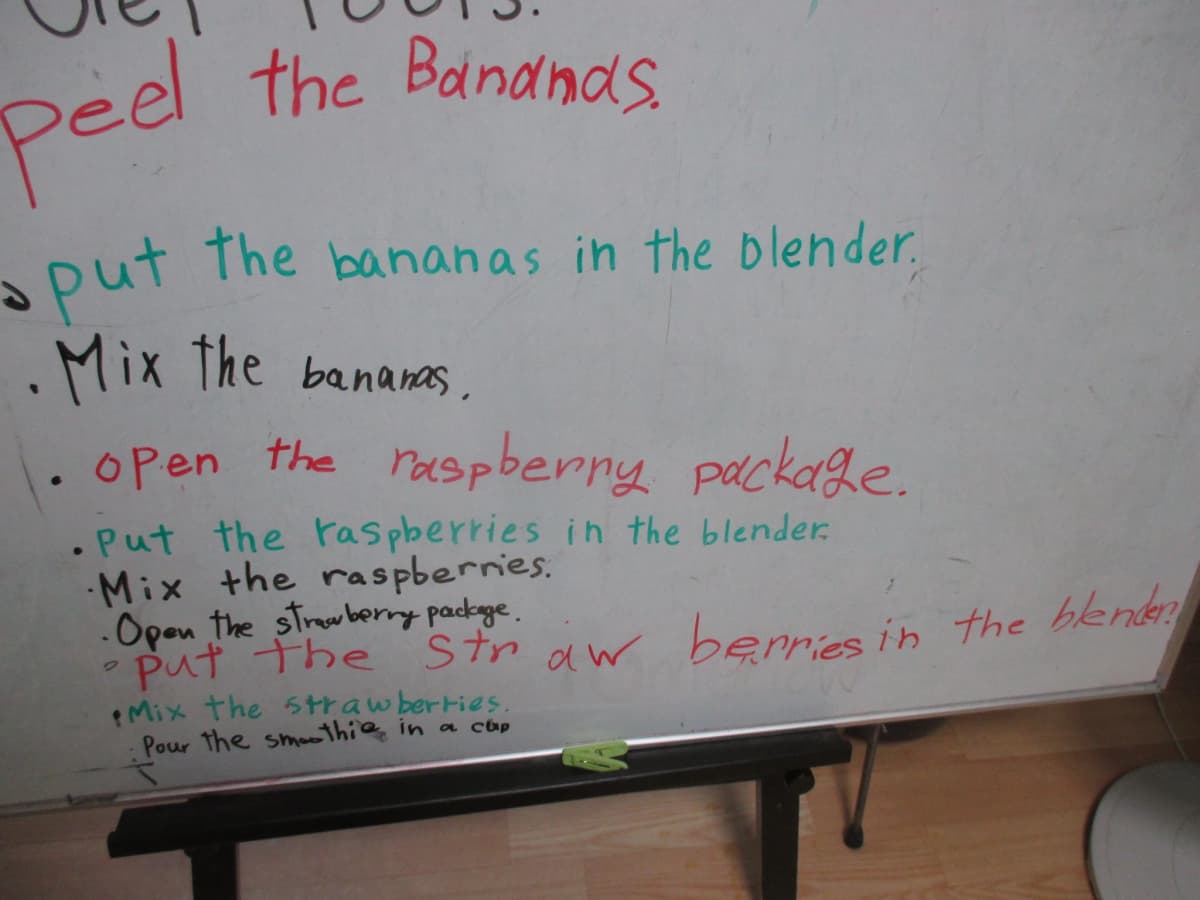 peel the Bananas.
put the bananas in the blender.
. Mix The bananas.
. open the raspberry package.
. Put the raspberries in the blender.
. Mix the raspberries.
. Open The strawberry package.
. put the straw berries in the blender.
. Mix the strawberries.
. Pour The smoothie in a cup